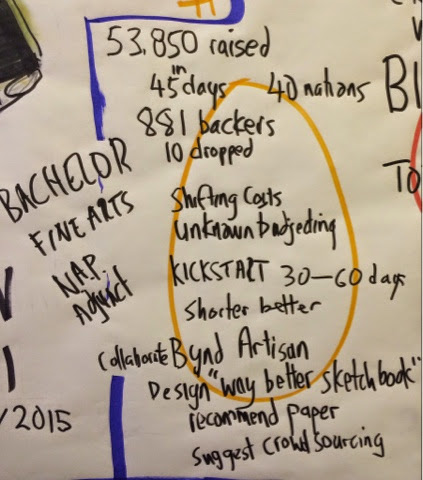 53,850 raised
in
45 days 40 nations
881 backers
10 dropped
Shifting Costs
unknown budjeding
KICKSTART 30–60 days
Shorter better
Collaborate Bynd Artisan
Design "way better sketchbook"
recommend paper
suggest crowd sourcing
BACHELOR
FINE ARTS
N.A.P.
/2015
BI
TO